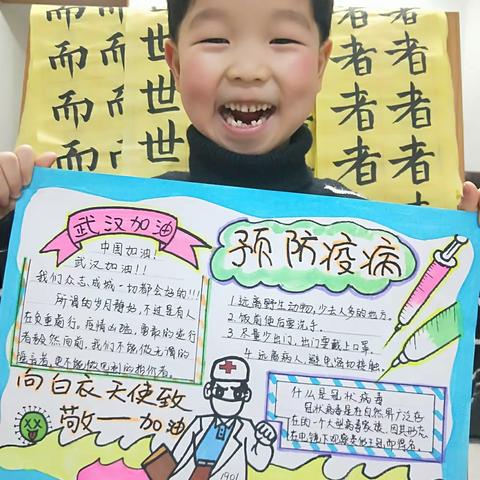 而 而 世 者 者
而 而 世 者 者
而 而 世 者 者
武汉加油
中国加油!
武汉加油!!
我们众志成城一切都会好的!!!
所谓的岁月静好,不过是有人
在负重前行。疫情凶猛,勇敢的逆行
者毅然向前。我们不能做无谓的
向白衣天使致
敬 加油
预防疫病
1.远离野生动物,少去人多的地方。
2.饭前便后要洗手。
3.尽量少出门、出门穿戴上口罩。
4.远离病人,避免密切接触。
什么是冠状病毒
冠状病毒是在自然界广泛存
在的一个大型病毒家族、因其形态
在电镜下观察类似王冠,而得名
1901